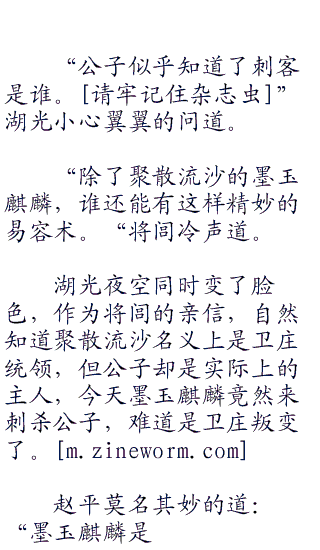 “公子似乎知道了刺客
是谁。[请牢记住杂志虫]”
湖光小心翼翼的问道。
“除了聚散流沙的墨玉
麒麟，谁还能有这样精妙的
易容术。“将闾冷声道。
湖光夜空同时变了脸
色，作为将闾的亲信，自然
知道聚散流沙名义上是卫庄
统领，但公子却是实际上的
主人，今天墨玉麒麟竟然来
刺杀公子，难道是卫庄叛变
了。[m.zineworm.com]
赵平莫名其妙的道：
“墨玉麒麟是